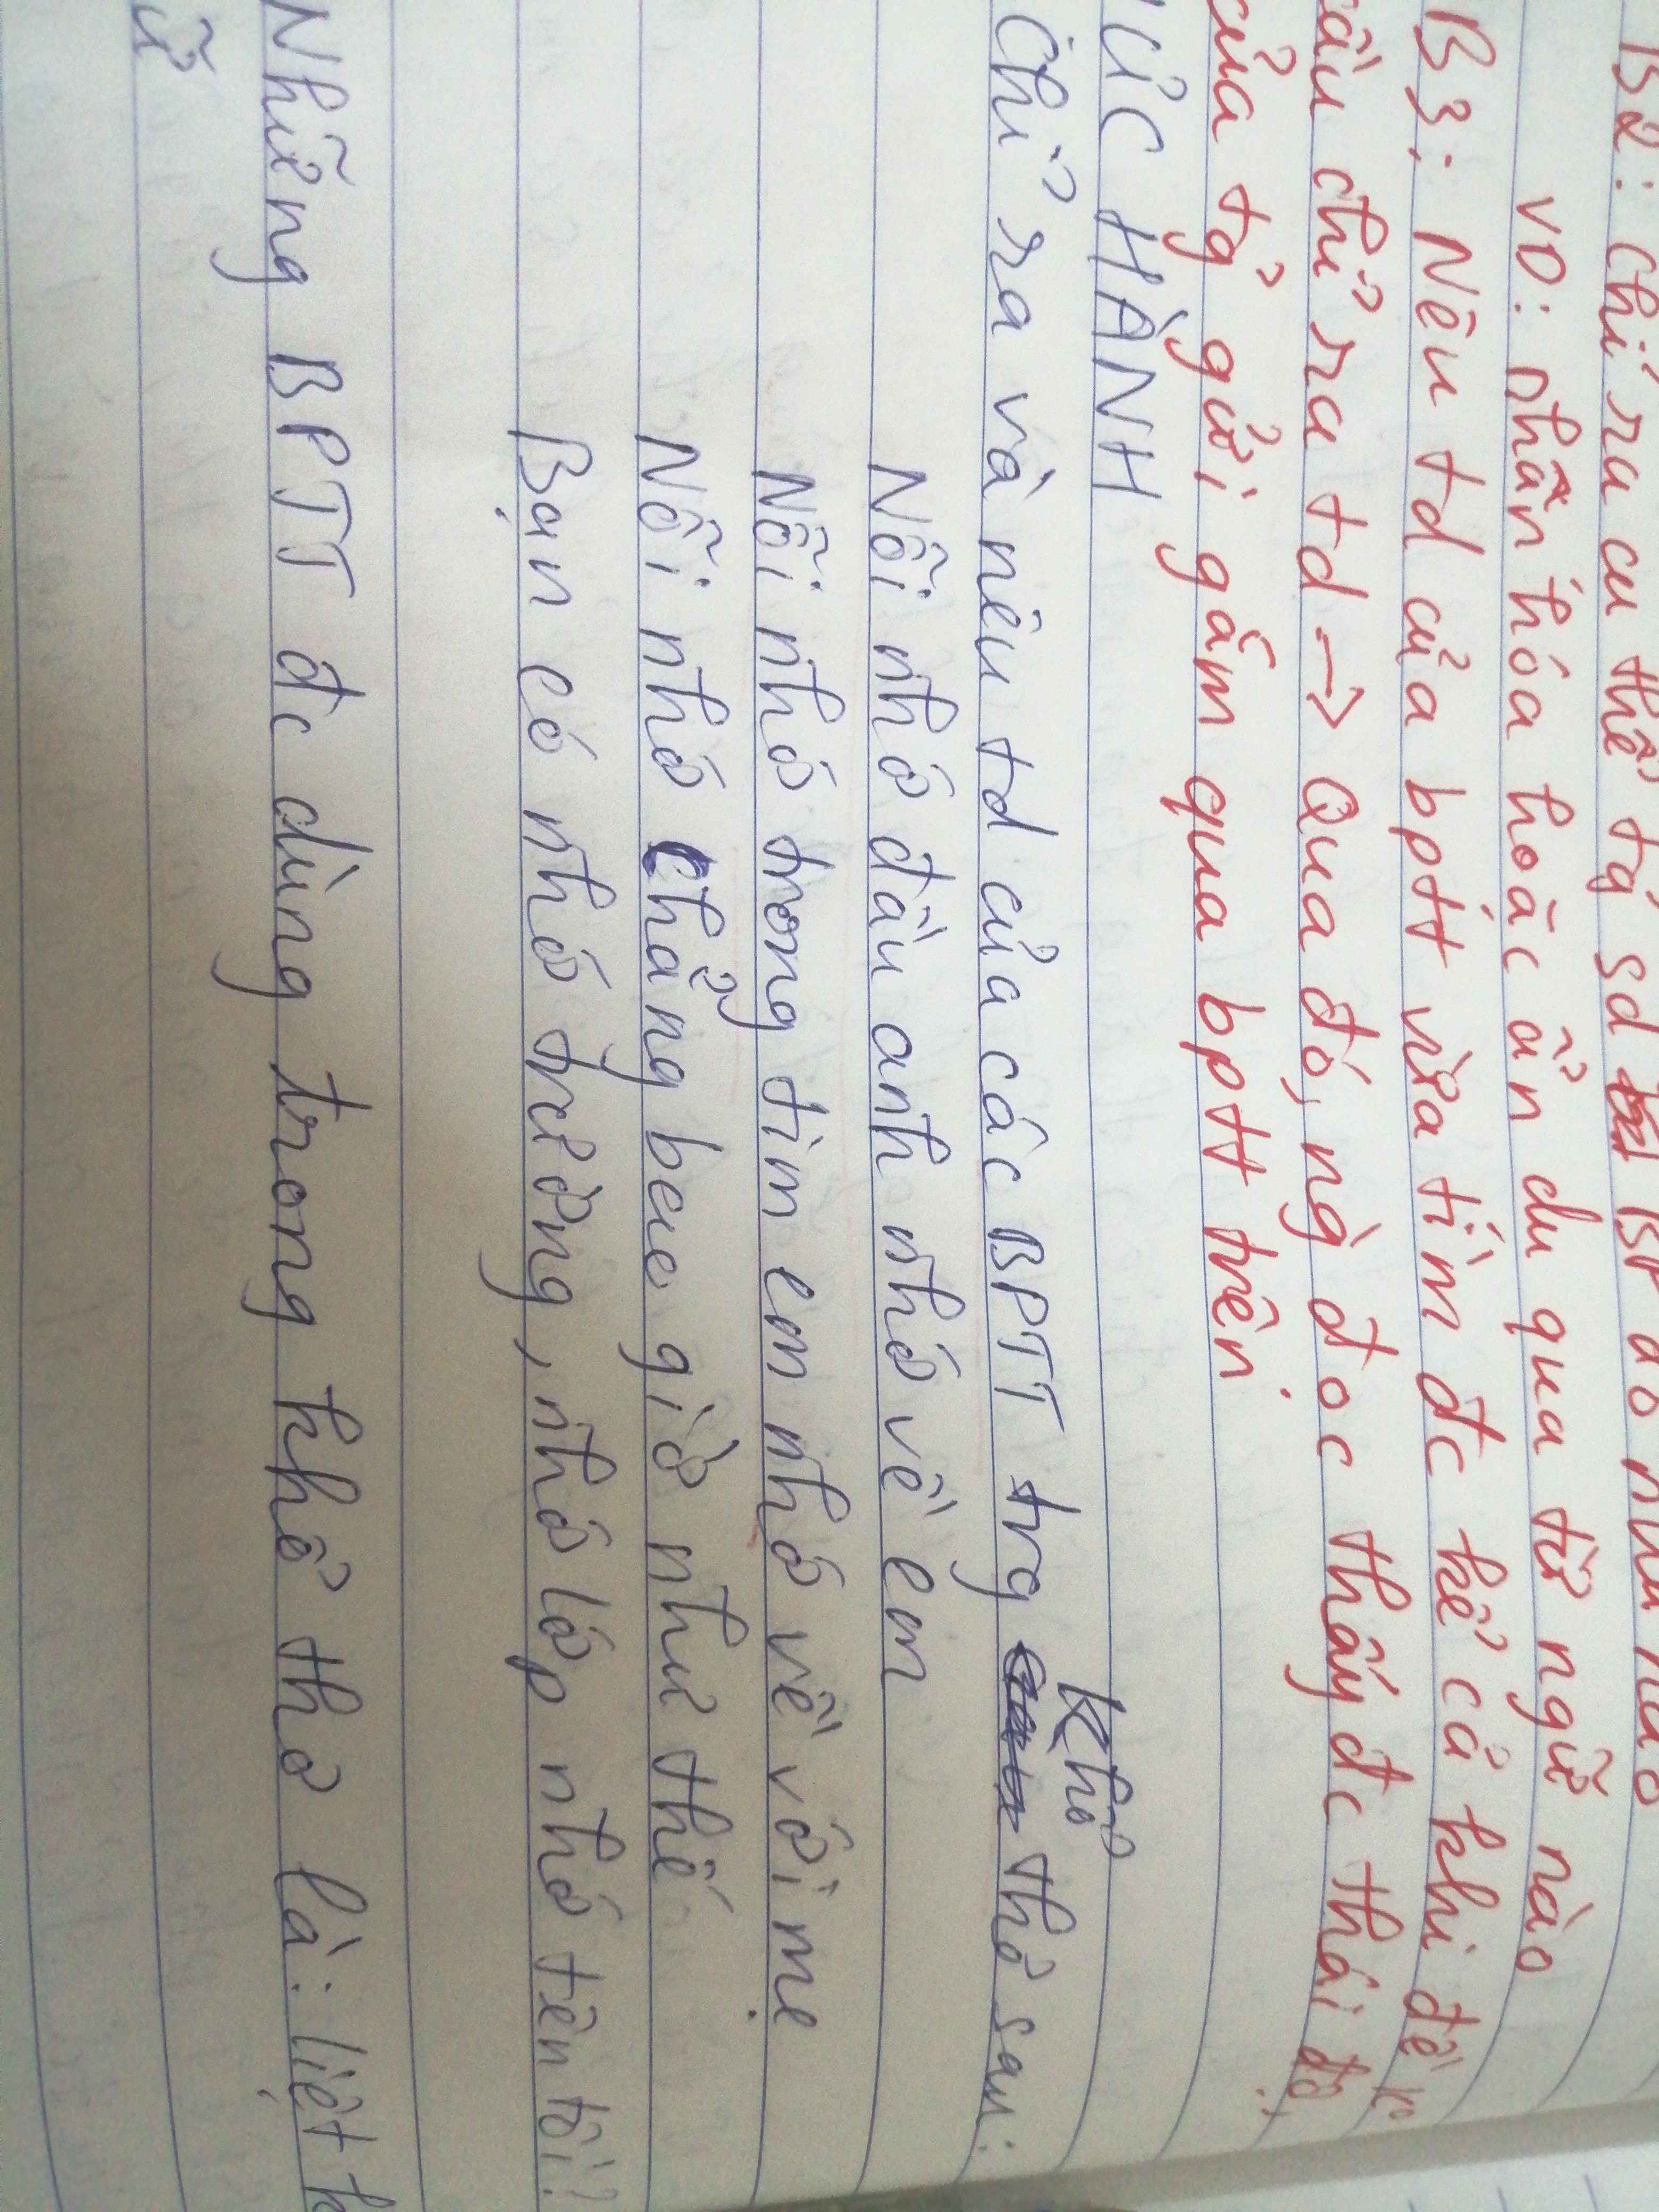 B2: Chỉ ra cụ thể tg sd BP đó như nào
VD: nhân hóa hoặc ẩn dụ qua từ ngữ nào
B3: Nêu td của bptt vừa tìm đc kể cả khi đề ko
cầu chỉ ra td → Qua đó, ng đọc thấy đc thái độ,
của tg gửi gắm qua bptt trên.
ỰC HÀNH
Chỉ ra và nêu td của các BPTT trg Khổ thơ sau:
Nỗi nhớ đầu anh nhớ về em
Nỗi nhớ trong tim em nhớ về với mẹ
Nỗi nhớ chẳng bao giờ như thế
Bạn có nhớ trường, nhớ lớp nhớ tên tôi?
Những BPTT đc dùng trong khổ thơ là: liệt k
ữ